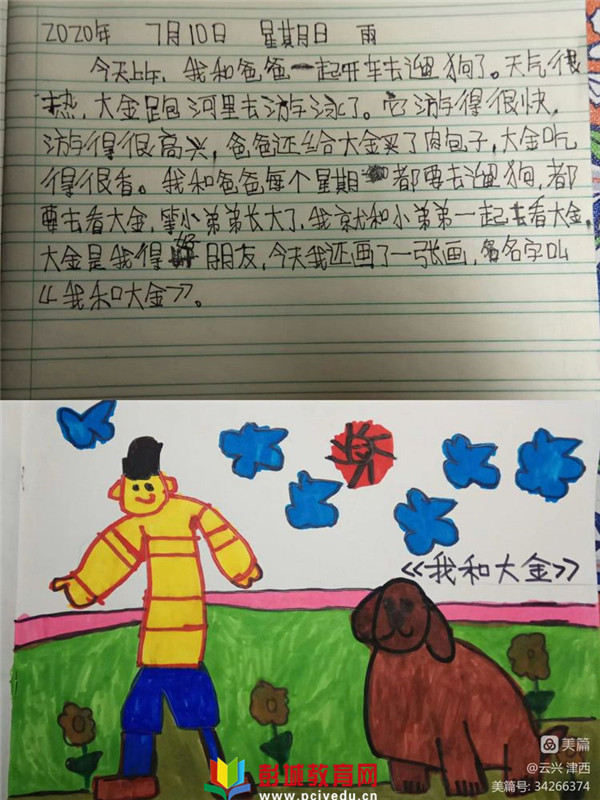 2020年 7月10日 星期日 雨
今天上午,我和爸爸一起开车去遛狗了。天气很
热,大金跑河里去游泳了。它游得很快,
游得很高兴,爸爸还给大金买了肉包子,大金吃
得很香。我和爸爸每个星期都要去遛狗,都
要去看大金,等小弟弟长大了,我就和小弟弟一起去看大金,
大金是我得好朋友,今天我还画了一张画,名字叫
《我和大金》。
《我和大金》
美篇
@云兴 津西
美篇号: 34266374
彭城教育网
www.pcjyedu.cn